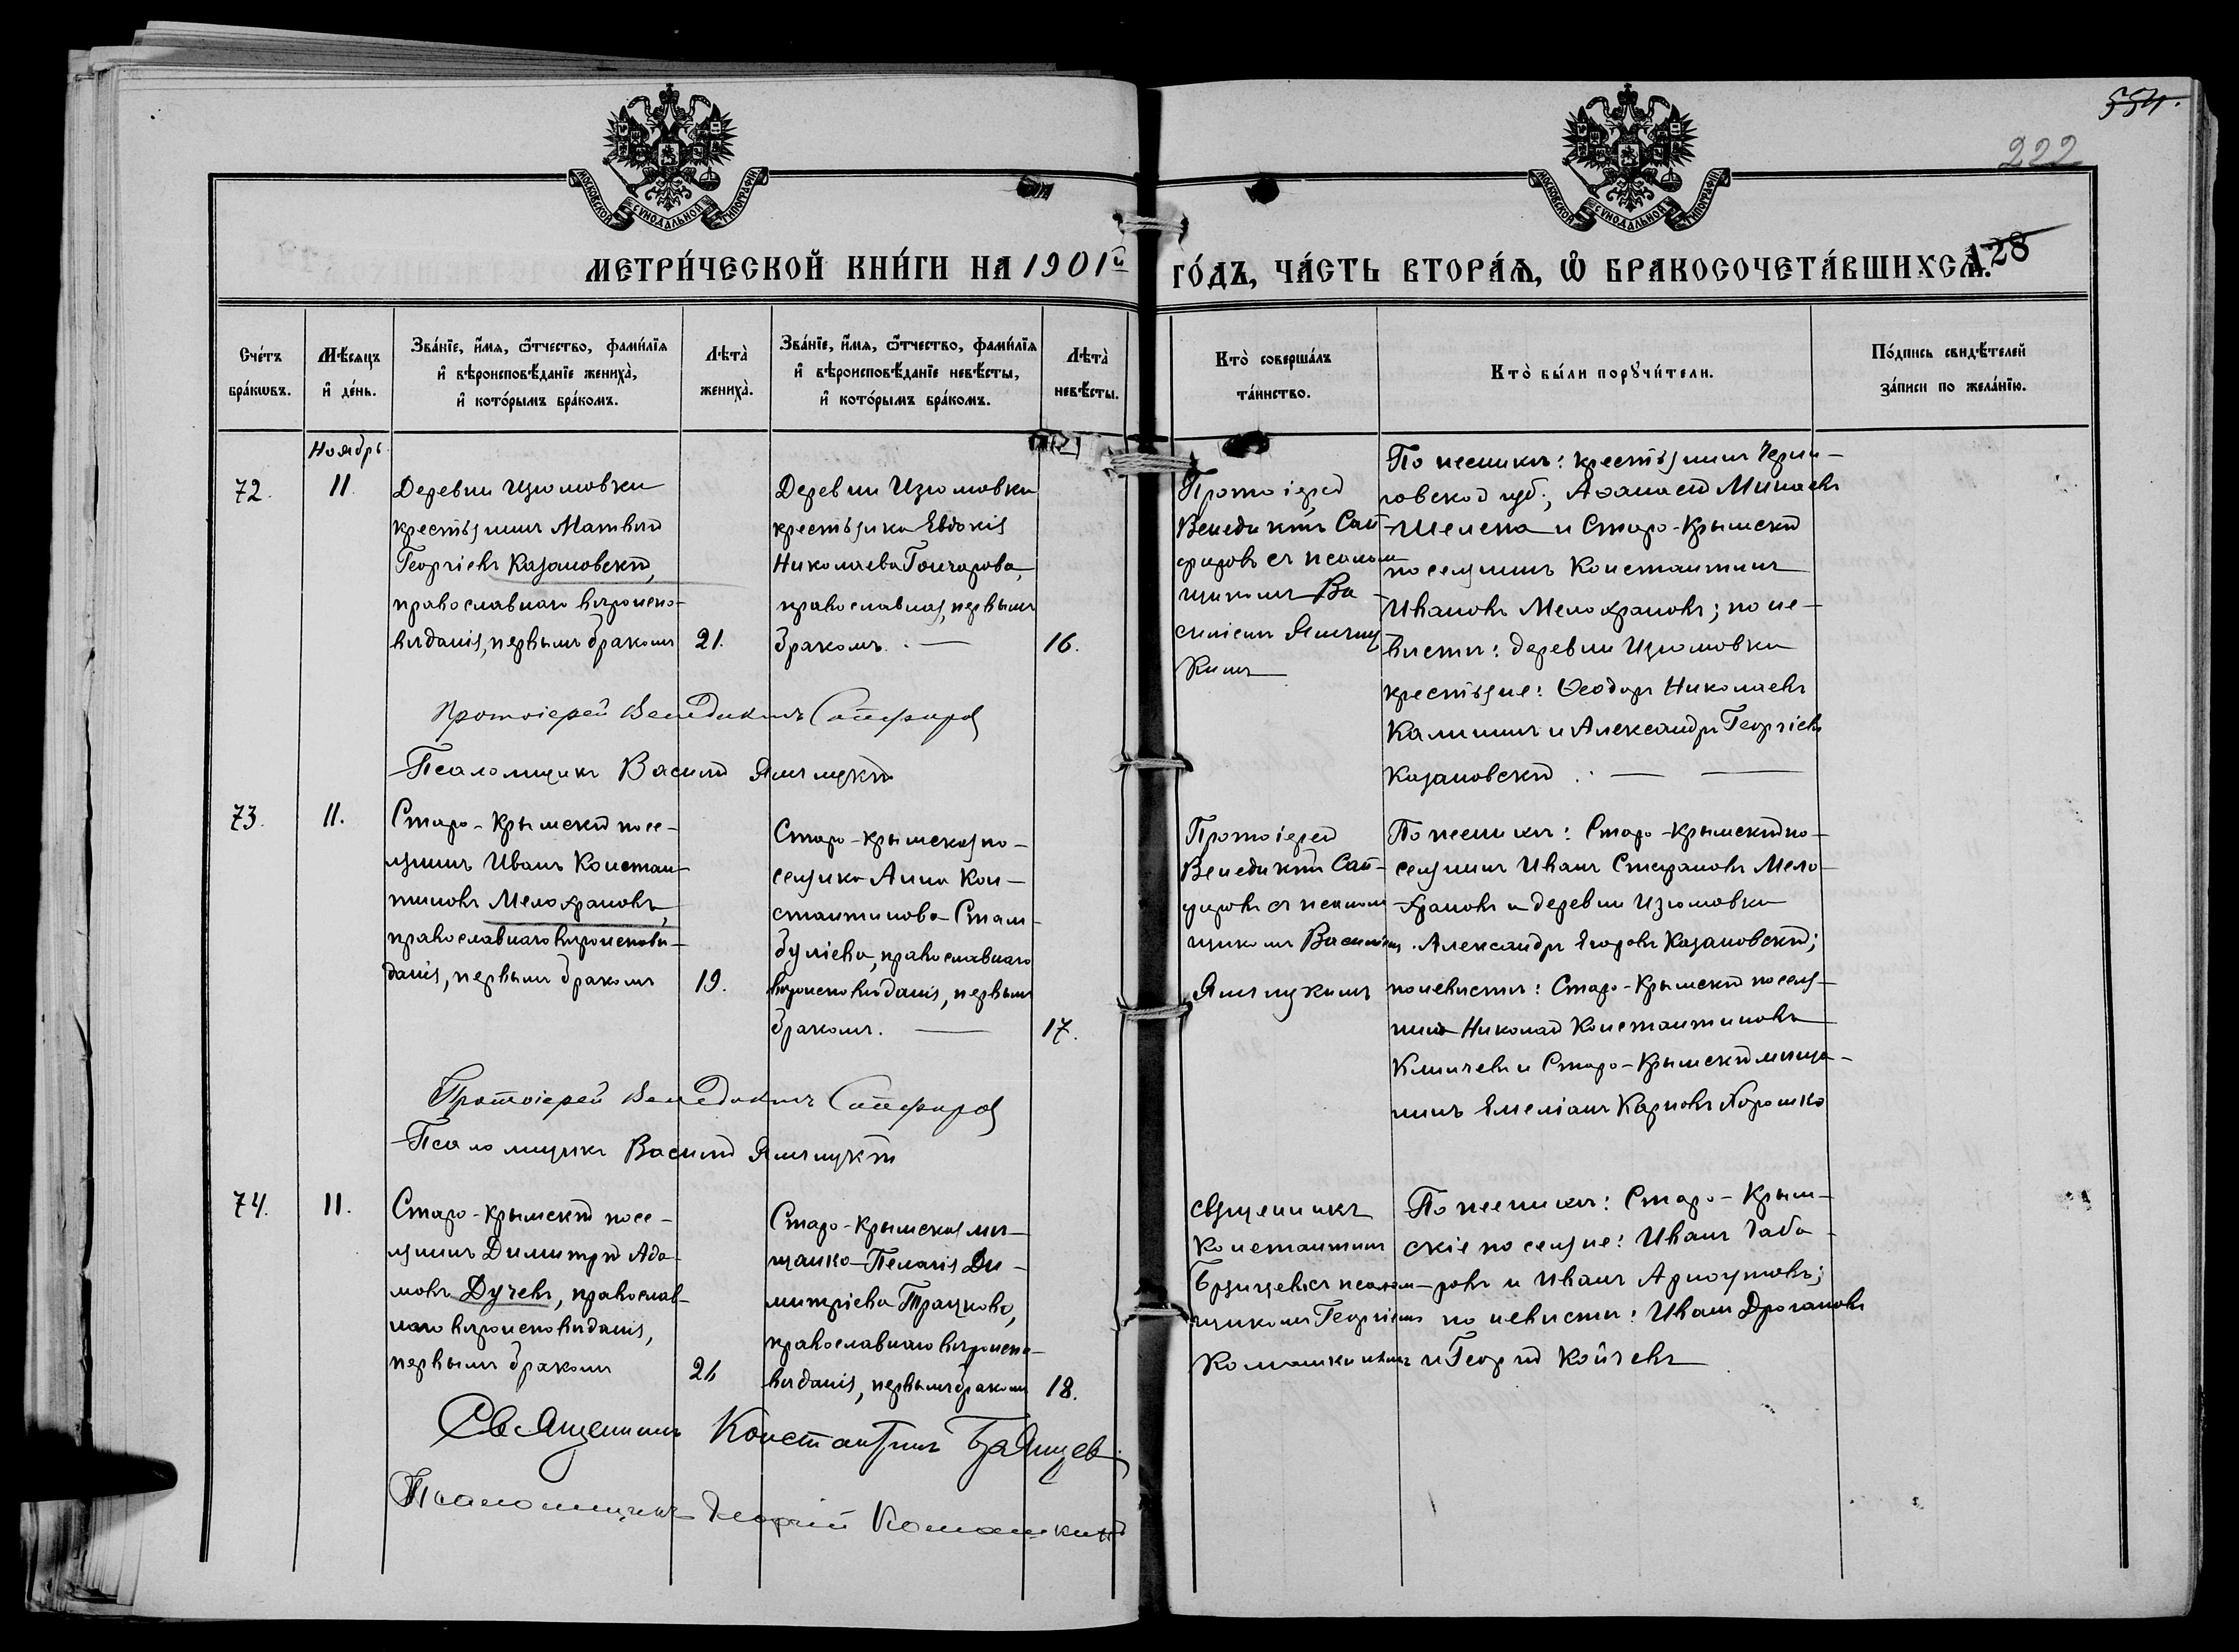 554.
222
МОСКОВСКОЙ СѴНОДАЛЬНОЙ ТИПОГРАФІИ
МОСКОВСКОЙ СѴНОДАЛЬНОЙ ТИПОГРАФІИ
128
МЕТРИ́ЧЕСКОЙ КНИ́ГИ НА 1901й ГО́ДЪ, ЧА́СТЬ ВТОРА́Ѧ, Ѡ҆ БРАКОСОЧЕТА́ВШИХСѦ.
Сче́тъ
бра́кѡвъ.
Мѣ́сяцъ
и҆ де́нь.
Зва́нїе, и҆́мя, ѻ҆́тчество, фами́лїя
и҆ вѣроисповѣ́данїе жениха̀,
и҆ кото́рымъ бра́комъ.
Лѣта̀
жениха̀.
Зва́нїе, и҆́мя, ѻ҆́тчество, фами́лїя
и҆ вѣроисповѣ́данїе невѣ́сты,
и҆ кото́рымъ бра́комъ.
Лѣта̀
невѣ́сты.
Кто̀ соверша́лъ
та́инство.
Кто̀ бы́ли порꙋчи́тели.
По́дпись свидѣ́телей
за́писи по жела́нїю.
Ноябрь
72.
11.
Деревни Изюмовки
крестьянинъ Матвѣй
Георгіевъ Казановскій,
православнаго вѣроиспо-
вѣданія, первымъ бракомъ
21.
Деревни Изюмовки
крестьянка Евдокія
Николаева Гончарова,
православная, первымъ
бракомъ. —
16.
Протоіерей
Венедиктъ Сап-
фировъ съ псалом
щикомъ Ва-
силіемъ
По женихѣ: крестьянинъ Черни-
говской губ., Аѳанасій Минаевъ
Шелепа и Старо-Крымскій
поселянинъ Константинъ
Ивановъ Мелохрановъ; по не-
вѣстѣ: деревни Изюмовки
крестьяне: Ѳеодоръ Николаевъ
Калининъ и Александръ Георгіевъ
Казановскій. — —
Протоіерей Венедиктъ Сапфировъ
Псаломщикъ Василій
73.
11.
Старо-Крымскій посе-
лянинъ Иванъ Констан-
тиновъ Мелохрановъ,
православнаго вѣроисповѣ-
данія, первымъ бракомъ
19.
Старо-Крымская по-
селянка Анна Кон-
стантинова Стам-
буліева, православнаго
вѣроисповѣданія, первымъ
бракомъ. —
17.
Протоіерей
Венедиктъ Сап-
фировъ съ псалом
щикомъ Василіемъ
По женихѣ: Старо-Крымскій по-
селянинъ Иванъ Стефановъ Мело-
храновъ и деревни Изюмовки
Александръ Егоровъ Казановскій;
по невѣстѣ: Старо-Крымскій поселя-
нинъ Николай Константиновъ
и Старо-Крымскій мѣща-
нинъ Емеліанъ Карповъ Порошко
Протоіерей Венедиктъ Сапфировъ
Псаломщикъ Василій
74.
11.
Старо-Крымскій посе-
лянинъ Димитрій Ада-
мовъ Дучевъ, православ-
наго вѣроисповѣданія,
первымъ бракомъ
21
Старо-Крымская мѣ-
щанка Пелагія Ди-
митріева Трацкова,
православнаго вѣроиспо-
вѣданія, первымъ бракомъ
18.
Священникъ
Константинъ
съ псалом-
щикомъ Георгіемъ
По женихѣ: Старо-Крым-
скіе поселяне: Иванъ Габа-
ровъ и Иванъ Арнаутовъ;
по невѣстѣ: Иванъ Драгановъ
и Георгій Койчевъ
Священникъ Константинъ
Псаломщикъ Георгій